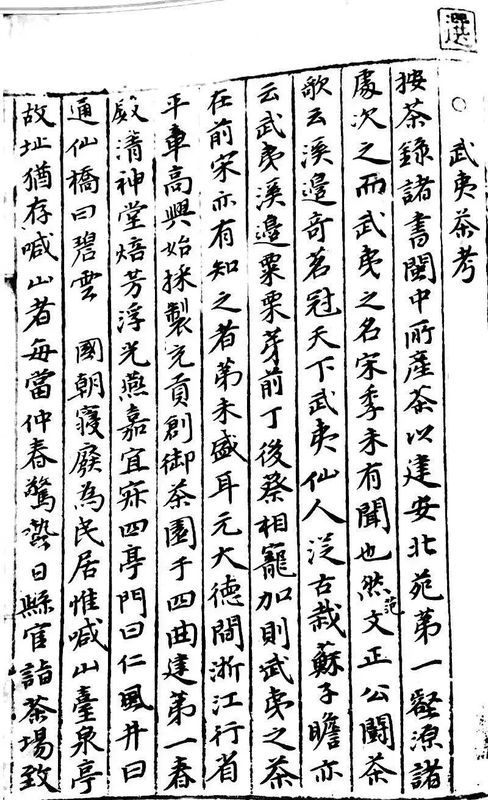 選
○ 武夷茶考
按茶錄諸書閩中所產茶以建安北苑第一壑源諸
處次之而武夷之名宋季未有聞也然范文正公鬪茶
歌云溪邊奇茗冠天下武夷仙人從古栽蘇子瞻亦
云武夷溪邊粟粟芽前丁後蔡相寵加則武夷之茶
在前宋亦有知之者第未盛耳元大德間浙江行省
平章高興始採製充貢創御茶園于四曲建第一春
殿清神堂焙芳浮光燕嘉宜寂四亭門曰仁風井曰
通仙橋曰碧雲 國朝寖廢為民居惟喊山臺泉亭
故址猶存喊山者每當仲春驚蟄日縣官詣茶場致